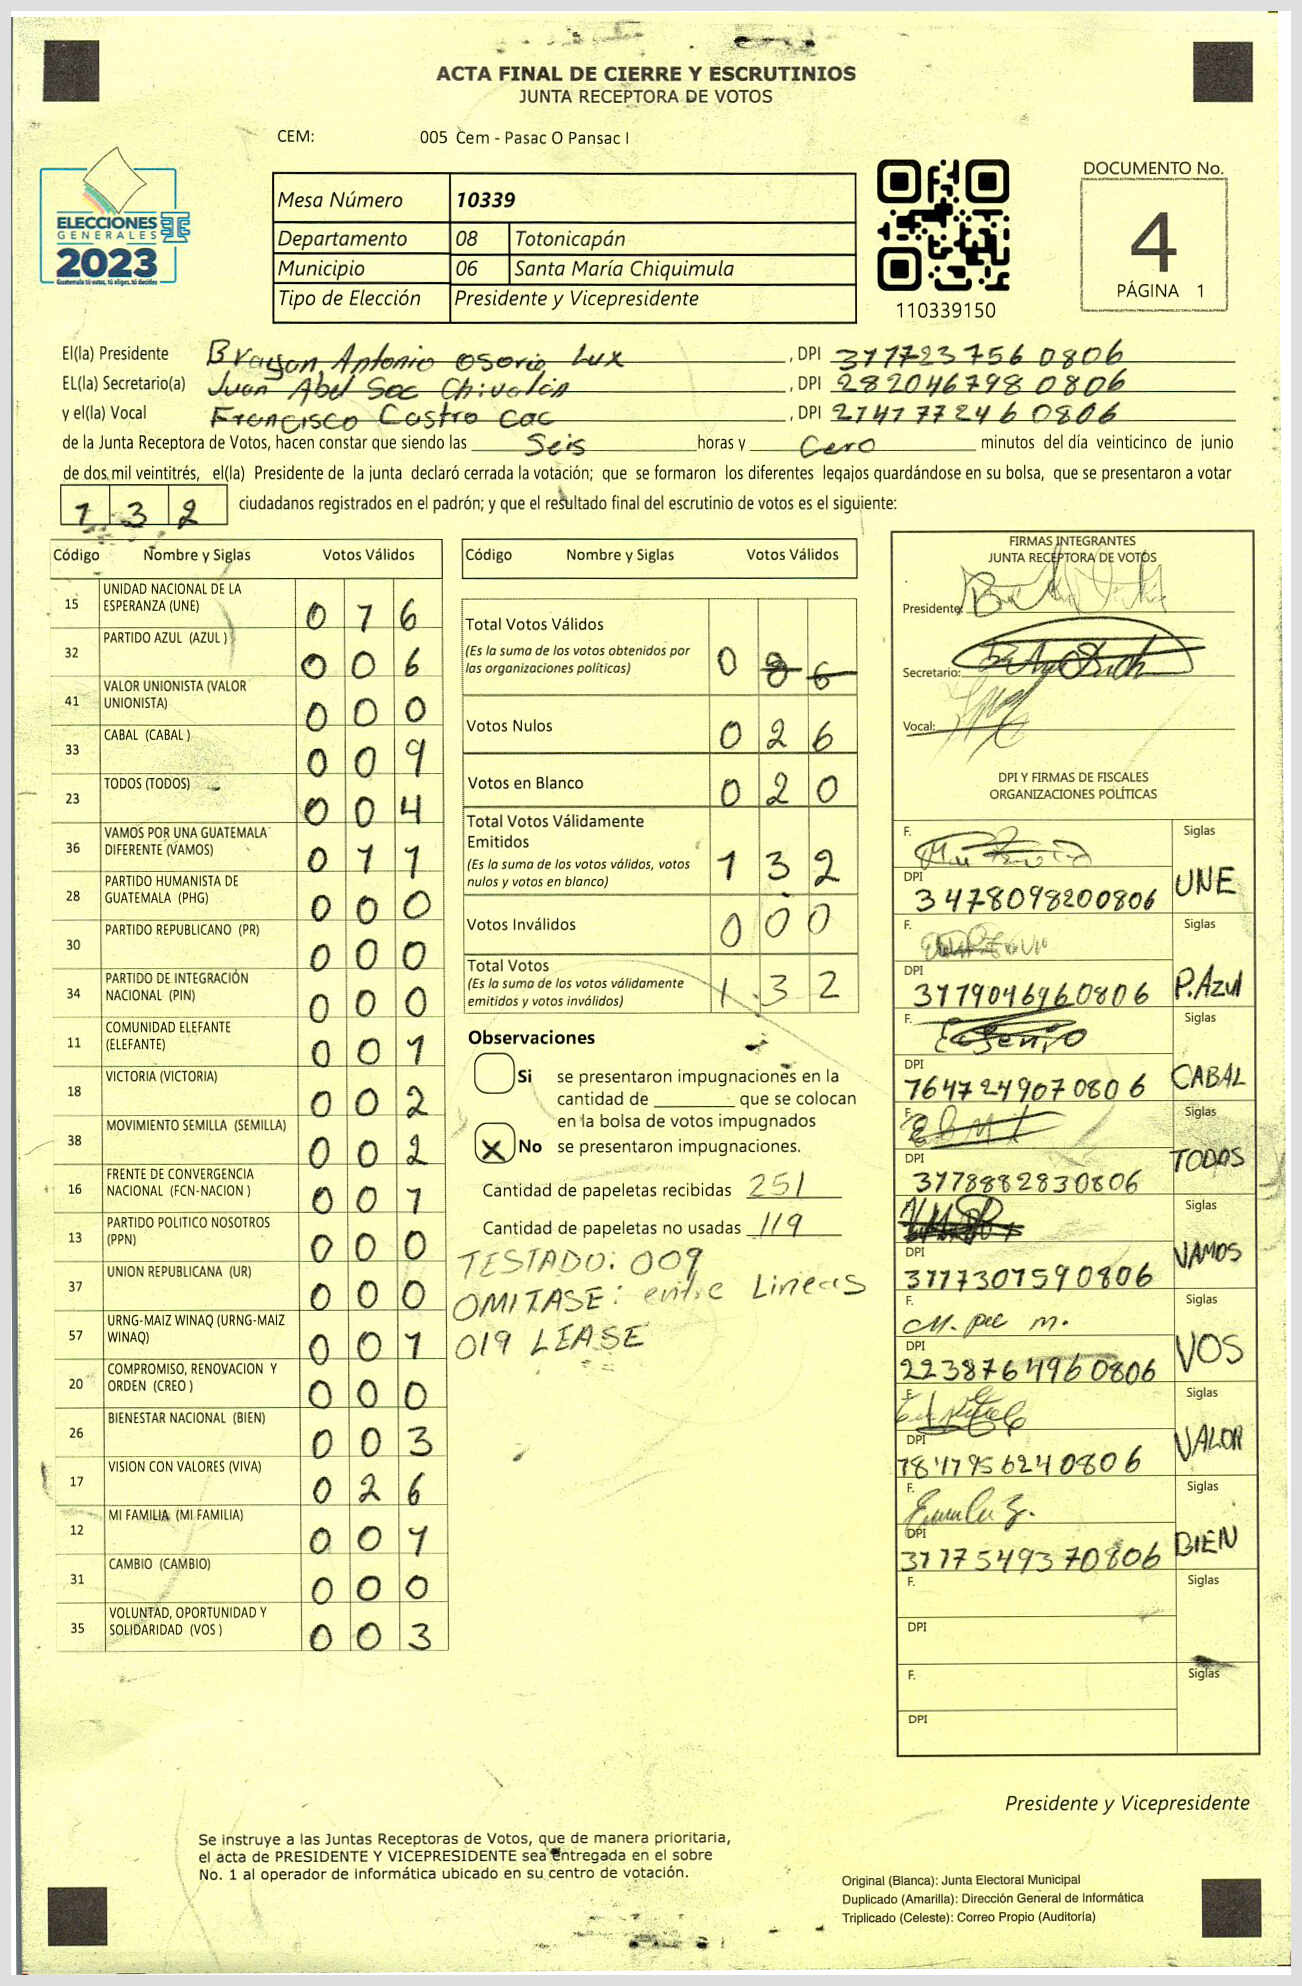 ACTA FINAL DE CIERRE Y ESCRUTINIOS
JUNTA RECEPTORA DE VOTOS
CEM: 005 Cem - Pasac O Pansac I
ELECCIONES
GENERALES
2023
Guatemala tú votas, tú eliges, tú decides
Mesa Número 10339
Departamento 08 Totonicapán
Municipio 06 Santa María Chiquimula
Tipo de Elección Presidente y Vicepresidente
110339150
DOCUMENTO No.
4
PÁGINA 1
El(la) Presidente Brayan Antonio Osorio Lux , DPI 3177237560806
EL(la) Secretario(a) Juan Abel Soc Chivalán , DPI 2820467980806
y el(la) Vocal Francisco Castro Cac , DPI 2747772460806
de la Junta Receptora de Votos, hacen constar que siendo las Seis horas y Cero minutos del día veinticinco de junio
de dos mil veintitrés, el(la) Presidente de la junta declaró cerrada la votación; que se formaron los diferentes legajos quardándose en su bolsa, que se presentaron a votar
132 ciudadanos registrados en el padrón; y que el resultado final del escrutinio de votos es el siguiente:
Código Nombre y Siglas Votos Válidos
15 UNIDAD NACIONAL DE LA ESPERANZA (UNE) 0 7 6
32 PARTIDO AZUL (AZUL ) 0 0 6
41 VALOR UNIONISTA (VALOR UNIONISTA) 0 0 0
33 CABAL (CABAL ) 0 0 9
23 TODOS (TODOS) 0 0 4
36 VAMOS POR UNA GUATEMALA DIFERENTE (VAMOS) 0 1 1
28 PARTIDO HUMANISTA DE GUATEMALA (PHG) 0 0 0
30 PARTIDO REPUBLICANO (PR) 0 0 0
34 PARTIDO DE INTEGRACIÓN NACIONAL (PIN) 0 0 0
11 COMUNIDAD ELEFANTE (ELEFANTE) 0 0 1
18 VICTORIA (VICTORIA) 0 0 2
38 MOVIMIENTO SEMILLA (SEMILLA) 0 0 2
16 FRENTE DE CONVERGENCIA NACIONAL (FCN-NACION ) 0 0 1
13 PARTIDO POLITICO NOSOTROS (PPN) 0 0 0
37 UNION REPUBLICANA (UR) 0 0 0
57 URNG-MAIZ WINAQ (URNG-MAIZ WINAQ) 0 0 1
20 COMPROMISO, RENOVACION Y ORDEN (CREO ) 0 0 0
26 BIENESTAR NACIONAL (BIEN) 0 0 3
17 VISION CON VALORES (VIVA) 0 2 6
12 MI FAMILIA (MI FAMILIA) 0 0 1
31 CAMBIO (CAMBIO) 0 0 0
35 VOLUNTAD, OPORTUNIDAD Y SOLIDARIDAD (VOS ) 0 0 3
Código Nombre y Siglas Votos Válidos
Total Votos Válidos
(Es la suma de los votos obtenidos por
las organizaciones políticas) 0 8 6
Votos Nulos 0 2 6
Votos en Blanco 0 2 0
Total Votos Válidamente
Emitidos
(Es la suma de los votos válidos, votos
nulos y votos en blanco) 1 3 2
Votos Inválidos 0 0 0
Total Votos
(Es la suma de los votos válidamente
emitidos y votos inválidos) 1 3 2
Observaciones
Si se presentaron impugnaciones en la
cantidad de ________ que se colocan
en la bolsa de votos impugnados
X No se presentaron impugnaciones.
Cantidad de papeletas recibidas 251
Cantidad de papeletas no usadas 119
TESTADO: 009
OMITASE: entre Lineas
019 LEASE
FIRMAS INTEGRANTES
JUNTA RECEPTORA DE VOTOS
Presidente:
Secretario:
Vocal:
DPI Y FIRMAS DE FISCALES
ORGANIZACIONES POLÍTICAS
F. Siglas
DPI 3478098200806 UNE
F. Siglas
DPI 3179046960806 P.Azul
F. Siglas
DPI 1647249070806 CABAL
F. Siglas
DPI 3178882830806 TODOS
F. Siglas
DPI 3177307590806 VAMOS
F. M. pec m. Siglas
DPI 2238764960806 VOS
F. Siglas
DPI VALOR
F. Siglas
DPI 3177549370806 BIEN
F. Siglas
DPI
F. Siglas
DPI
Presidente y Vicepresidente
Se instruye a las Juntas Receptoras de Votos, que de manera prioritaria,
el acta de PRESIDENTE Y VICEPRESIDENTE sea entregada en el sobre
No. 1 al operador de informática ubicado en su centro de votación.
Original (Blanca): Junta Electoral Municipal
Duplicado (Amarilla): Dirección General de Informática
Triplicado (Celeste): Correo Propio (Auditoría)